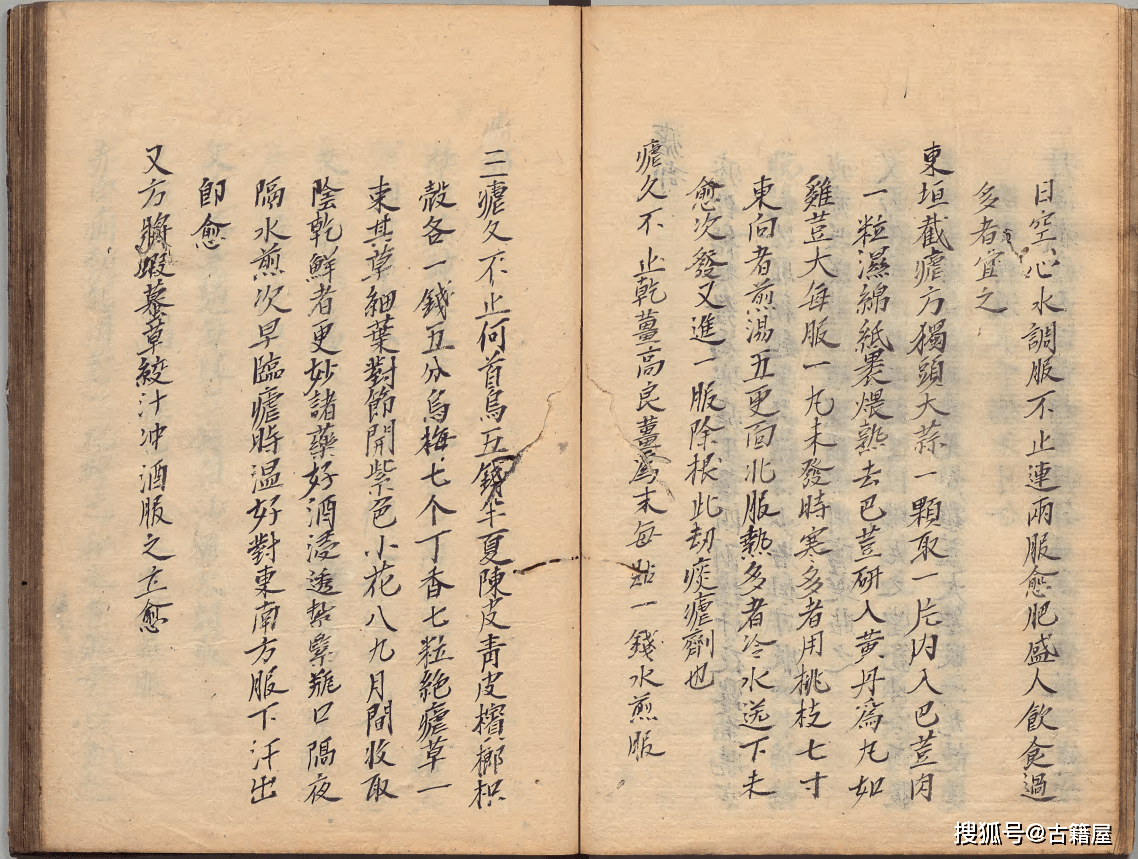 日空心水調服不止連兩服愈肥盛人飲食過
多者宜之
東垣截瘧方獨頭大蒜一顆取一片内入巴荳肉
一粒濕綿紙裹煨熟去巴荳研入黄丹為丸如
雞荳大每服一丸未發時寒多者用桃枝七寸
東向者煎湯五更面北服熱多者冷水送下未
愈次發又進一服除根此劫痰瘧劑也
瘧久不止乾薑高良薑為末每點一錢水煎服
三瘧久不止何首烏五錢半夏陳皮青皮檳榔枳
殼各一錢五分烏梅七个丁香七粒絶瘧草一
束其草細葉對節開紫色小花八九月間收取
陰乾鮮者更妙諸藥好酒浸透紮緊瓶口隔夜
隔水煎次早臨瘧時温好對東南方服下汗出
即愈
又方將蝦蟇草絞汁冲酒服之立愈
搜狐号@古籍屋